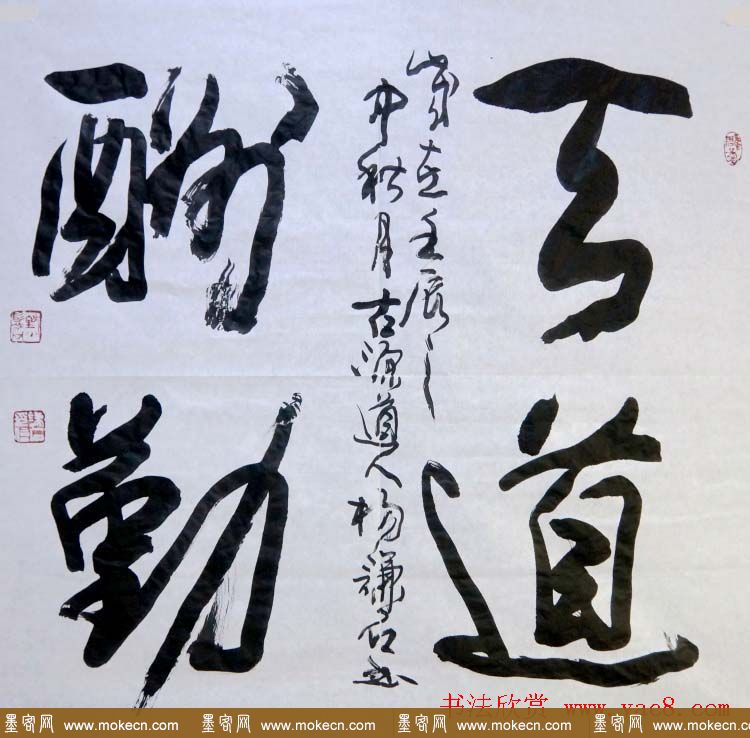 天道
酬勤
岁在壬辰之
中秋月古源道人杨谦石书
书法欣赏 www.yac8.com
墨客网 www.mokecn.com 墨客网 www.mokecn.com 墨客网 www.mokecn.com 墨客网 www.mokecn.com